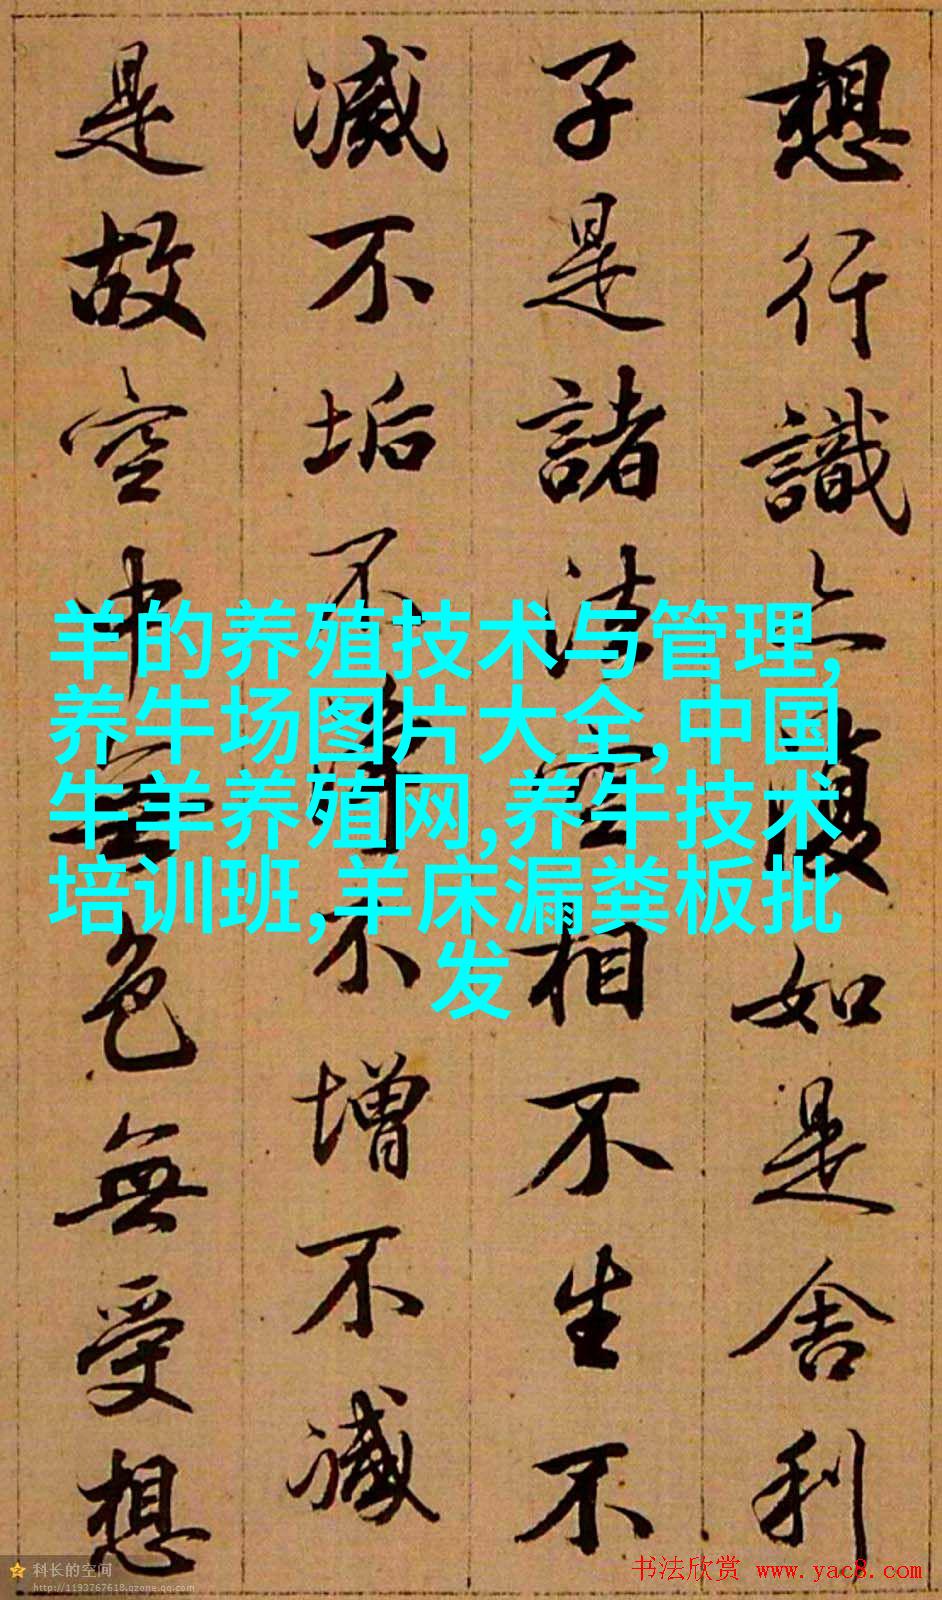 想行識亦復如是舍利
子是諸法空相不生不
滅不垢不淨不增不減
是故空中無色無受想
羊的养殖技术与管理,
养牛场图片大全,中国
牛羊养殖网,养牛技术
培训班,羊床漏粪板批
发
科长的空间
http://1193767618.qzone.qq.com
书法欣赏 www.yac8.com